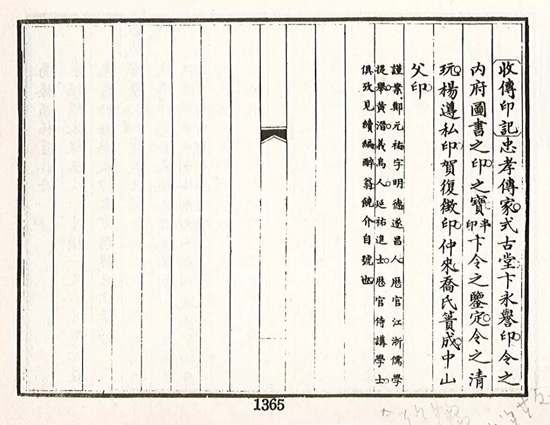 收傳印記忠孝傳家式古堂卞永譽印令之
內府圖書之印之寶半印卞令之鑒定令之清
玩楊遵私印賀復徵印仲來喬氏簣成中山
父印
謹案鄭元祐字明德遂昌人厯官江浙儒學
提舉黃溍義烏人延祐進士厯官侍講學士
俱攷見續編醉翁饒介自號也
1365